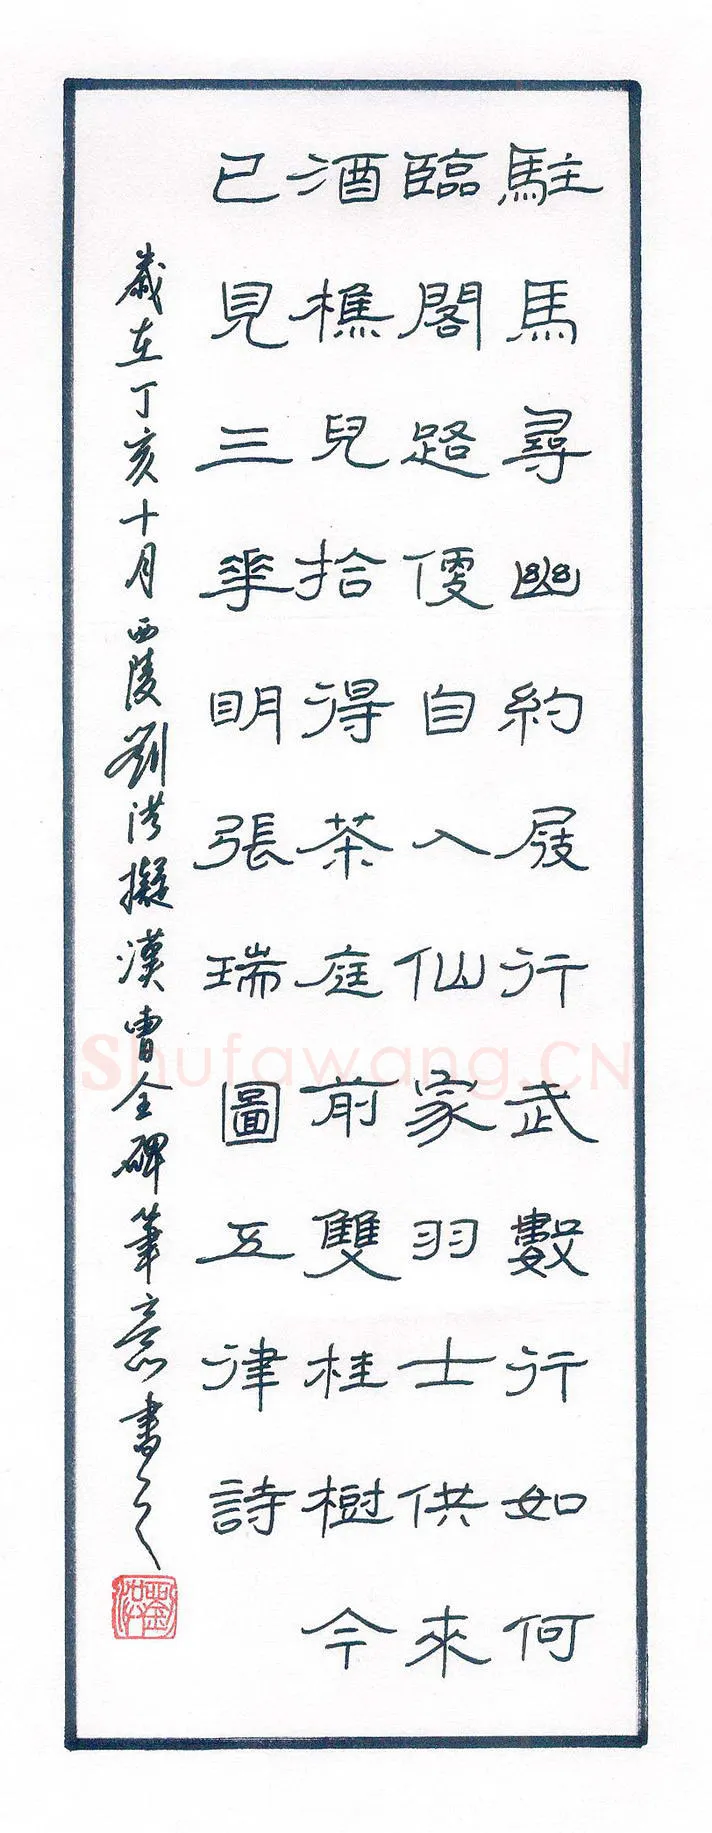 駐馬尋幽約屐行武數行如何
臨閣路優自入仙家羽士供來
酒樵兒拾得茶庭前雙桂樹今
已見三華明張瑞圖五律詩
歲在丁亥十月西陵劉洪擬漢曹全碑筆意書之
劉洪
Shufawang.CN